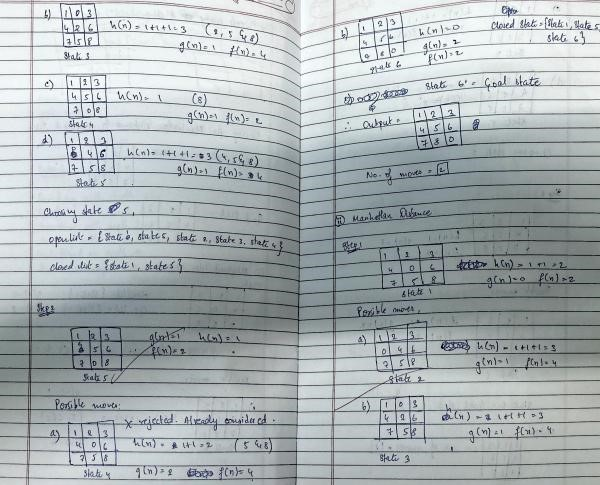 b)
1 0 3
4 2 6
7 5 8
State 3
h(n) = 1+1+1 = 3 (2, 5 & 8)
g(n) = 1 f(n) = 4
c)
1 2 3
4 5 6
7 0 8
State 4
h(n) = 1 (8)
g(n)=1 f(n) = 2
d)
1 2 3
4 6
7 5 8
State 5
h(n) = 1+1+1 = 3 (4, 5 & 8)
g(n)=1 f(n) = 4
Choosing state 5,
open list = {State 6, state 5, state 2, State 3, state 4}
closed list = {State 1, state 5}
Step 2
1 2 3
5 6
7 0 8
State 5
g(n)=1 h(n) = 1
f(n) = 2
Possible moves:
a)
1 2 3
4 0 6
7 5 8
State 4
X rejected. Already considered.
h(n) = 1+1 = 2 (5 & 8)
g(n) = 2 f(n) = 4
b)
1 2 3
4 5 6
8 0
State 6
h(n) = 0
g(n) = 2
f(n) = 2
closed state = {State 1, State 5,
state 6}
State 6 = Goal state
∴ Output =
1 2 3
4 5 6
7 8 0
No. of moves = 2
ii) Manhattan Distance
Step 1
1 2 3
4 0 6
7 5 8
State 1
h(n) = 1+1 = 2
g(n) = 0 f(n) = 2
Possible moves,
a)
1 2 3
0 4 6
7 5 8
State 2
h(n) = 1+1+1 = 3
g(n) = 1 f(n) = 4
b)
1 0 3
4 2 6
7 5 8
State 3
h(n) = 1+1+1 = 3
g(n) = 1 f(n) = 4